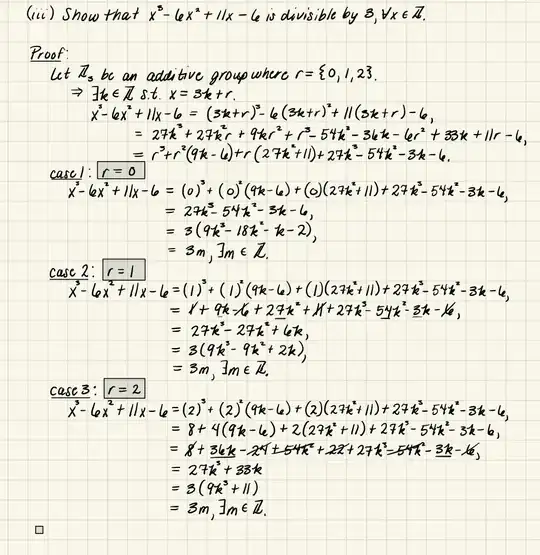 (iii) Show that x³ - 6x² + 11x - 6 is divisible by 3, ∀x ∈ ℤ.
Proof:
Let ℤ₃ be an additive group where r = {0, 1, 2}.
⇒ ∃k ∈ ℤ s.t. x = 3k + r.
x³ - 6x² + 11x - 6 = (3k+r)³ - 6(3k+r)² + 11(3k+r) - 6,
= 27k³ + 27k²r + 9kr² + r³ - 54k² - 36k - 6r² + 33k + 11r - 6,
= r³ + r²(9k - 6) + r(27k² + 11) + 27k³ - 54k² - 3k - 6.
case 1: r = 0
x³ - 6x² + 11x - 6 = (0)³ + (0)²(9k - 6) + (0)(27k² + 11) + 27k³ - 54k² - 3k - 6,
= 27k³ - 54k² - 3k - 6,
= 3(9k³ - 18k² - k - 2),
= 3m, ∃m ∈ ℤ.
case 2: r = 1
x³ - 6x² + 11x - 6 = (1)³ + (1)²(9k - 6) + (1)(27k² + 11) + 27k³ - 54k² - 3k - 6,
= 1 + 9k - 6 + 27k² + 11 + 27k³ - 54k² - 3k - 6,
= 27k³ - 27k² + 6k,
= 3(9k³ - 9k² + 2k),
= 3m, ∃m ∈ ℤ.
case 3: r = 2
x³ - 6x² + 11x - 6 = (2)³ + (2)²(9k - 6) + (2)(27k² + 11) + 27k³ - 54k² - 3k - 6,
= 8 + 4(9k - 6) + 2(27k² + 11) + 27k³ - 54k² - 3k - 6,
= 8 + 36k - 24 + 54k² + 22 + 27k³ - 54k² - 3k - 6,
= 27k³ + 33k
= 3(9k³ + 11)
= 3m, ∃m ∈ ℤ.